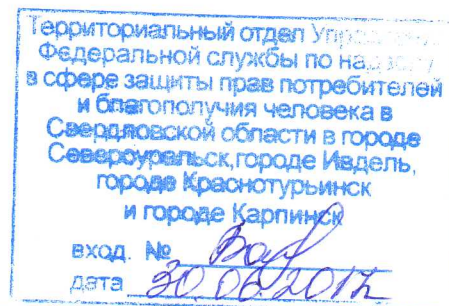 Территориальный отдел Управления
Федеральной службы по надзору
в сфере защиты прав потребителей
и благополучия человека в
Свердловской области в городе
Североуральск, городе Ивдель,
городе Краснотурьинск
и городе Карпинск
вход. №
дата 30.06.2017